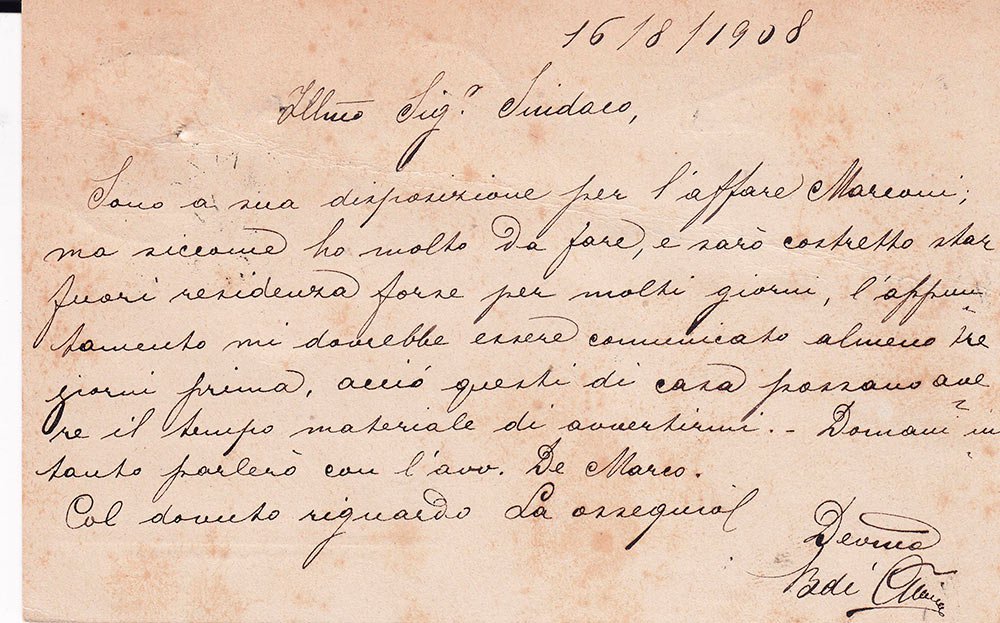 16/8/1908
Illmo Sig.r Sindaco,
Sono a sua disposizione per l'affare Marconi;
ma siccome ho molto da fare, e sarò costretto star
fuori residenza forse per molti giorni, l'appun
tamento mi dovrebbe essere comunicato almeno tre
giorni prima, acciò questi di casa possano ave
re il tempo materiale di avvertirmi. - Domani in
tanto parlerò con l'avv. De Marco.
Col dovuto riguardo La ossequio
Devmo